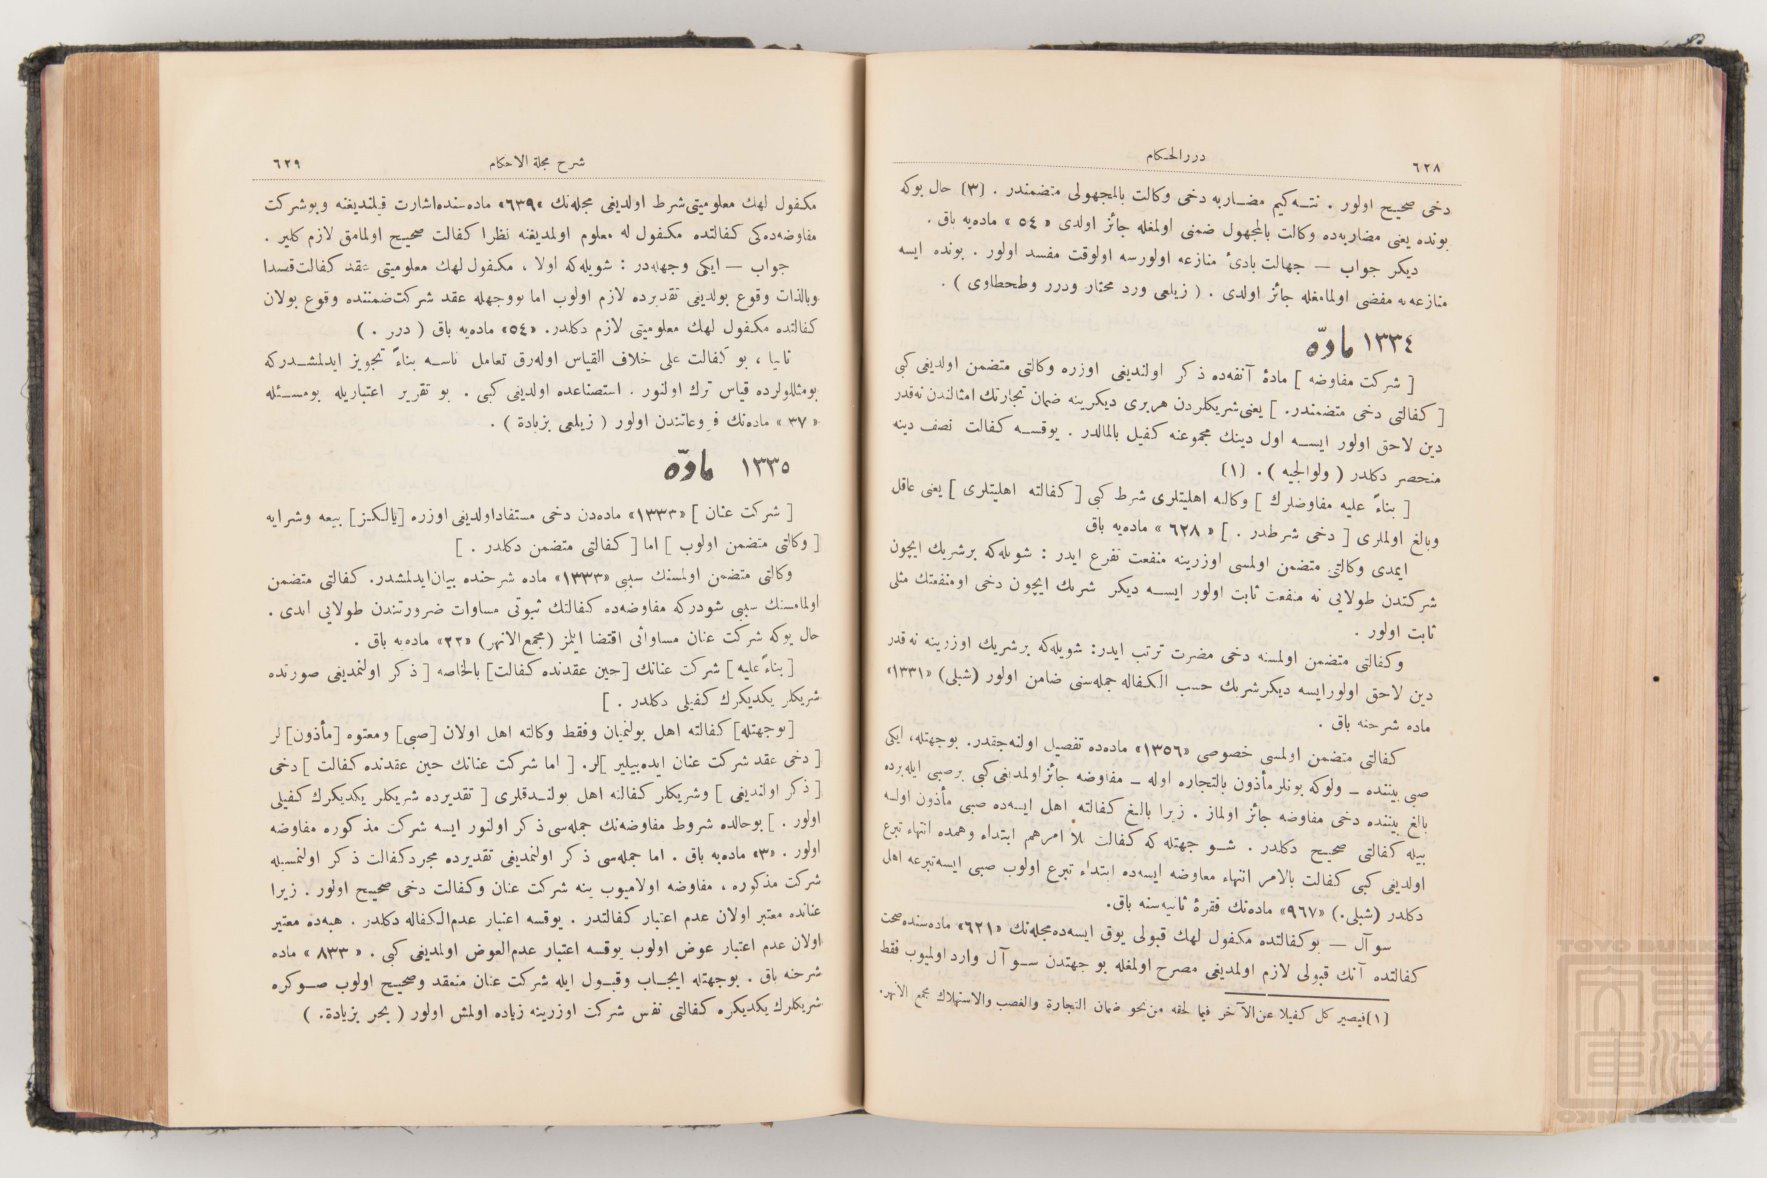 ٦٢٨
دررالحكام
دخی صحیح اولور . نته‌كیم مضاربه دخی وكالت بالمجهولی متضمندر . (٣) حال بوكه
بونده یعنی مضاربه‌ده وكالت بالمجهول ضمنی اولمغله جائز اولدی « ٥٤ » ماده‌یه باق .
دیكر جواب — جهالت بادئ منازعه اولورسه اولوقت مفسد اولور . بونده ایسه
منازعه‌یه مفضی اولمامغله جائز اولدی . ( زیلعی ورد محتار ودرر وطحطاوی ) .
١٣٣٤ مادّه
[ شركت مفاوضه ] مادۀ آنفه‌ده ذكر اولندیغی اوزره وكالتی متضمن اولدیغی كبی
[ كفالتی دخی متضمندر. ] یعنی شریكلردن هر بری دیكرینه ضمان تجارتك امثالندن نه‌قدر
دین لاحق اولور ایسه اول دینك مجموعنه كفیل بالمالدر . یوقسه كفالت نصف دینه
منحصر دكلدر ( ولوالجیه ) . (١)
[ بناءً علیه مفاوضلرك ] وكاله اهلیتلری شرط كبی [ كفالته اهلیتلری ] یعنی عاقل
وبالغ اولملری [ دخی شرطدر . ] « ٦٢٨ » ماده‌یه باق
ایمدی وكالتی متضمن اولمسی اوزرینه منفعت تفرع ایدر : شویله‌كه بر شریك ایچون
شركتدن طولایی نه منفعت ثابت اولور ایسه دیكر شریك ایچون دخی او منفعتك مثلی
ثابت اولور .
وكفالتی متضمن اولمسنه دخی مضرت ترتب ایدر: شویله‌كه بر شریك اوزرینه نه قدر
دین لاحق اولورایسه دیكرشریك حسب الكفاله جمله‌سنی ضامن اولور (شبلی) «١٣٣١»
ماده شرحنه باق .
كفالتی متضمن اولمسی خصوصی «١٣٥٦» ماده‌ده تفصیل اولنه‌جقدر. بوجهتله، ایكی
صبی بیننده — ولوكه بونلر مأذون بالتجاره اوله — مفاوضه جائز اولمدیغی كبی بر صبی ایله برده
بالغ بیننده دخی مفاوضه جائز اولماز . زیرا بالغ كفالته اهل ایسه‌ده صبی مأذون اولسه
بیله كفالتی صحیح دكلدر . شو جهتله كه كفالت بلا امر هم ابتداء وهمده انتهاء تبرع
اولدیغی كبی كفالت بالامر انتهاء معاوضه ایسه‌ده ابتداء تبرع اولوب صبی ایسه تبرعه اهل
دكلدر (شبلی.) «٩٦٧» ماده‌نك فقرۀ ثانیه‌سنه باق.
سوآل — بو كفالتده مكفول لهك قبولی یوق ایسه‌ده مجله‌نك «٦٢١» ماده‌سنده صحت
كفالتده آنك قبولی لازم اولمدیغی مصرح اولمغله بو جهتدن سوآل وارد اولمیوب فقط
(١) فیصیر كل كفیلا عن الآخر فیما لحقه من نحو ضمان التجارة والغصب والاستهلاك مجمع الانهر.
شرح مجلة الاحكام
٦٢٩
مكفول لهك معلومیتی شرط اولدیغی مجله‌نك «٦٣٩» ماده‌سنده اشارت قیلندیغنه وبو شركت
مفاوضه‌ده‌كی كفالتده مكفول له معلوم اولمدیغنه نظرا كفالت صحیح اولمامق لازم كلیر .
جواب — ایكی وجهله‌در : شویله‌كه اولا ، مكفول لهك معلومیتی عقد كفالت قسدا
وبالذات وقوع بولدیغی تقدیرده لازم اولوب اما بو وجهله عقد شركت ضمننده وقوع بولان
كفالتده مكفول لهك معلومیتی لازم دكلدر. «٥٤» ماده‌یه باق ( درر . )
ثانیا ، بو كفالت علی خلاف القیاس اوله‌رق تعامل ناسه بناءً تجویز ایدلمشدركه
بومثللولرده قیاس ترك اولنور . استصناعده اولدیغی كبی . بو تقریر اعتباریله بومسئله
« ٣٧ » ماده‌نك فروعاتندن اولور ( زیلعی بزیادة ) .
١٣٣٥ مادّه
[ شركت عنان ] «١٣٣٣» ماده‌دن دخی مستفاد اولدیغی اوزره [یالكز] بیعه وشرایه
[ وكالتی متضمن اولوب ] اما [ كفالتی متضمن دكلدر . ]
وكالتی متضمن اولمسنك سببی «١٣٣٣» ماده شرحنده بیان ایدلمشدر. كفالتی متضمن
اولمامسنك سببی شودركه مفاوضه‌ده كفالتك ثبوتی مساوات ضرورتندن طولایی ایدی .
حال بوكه شركت عنان مساواتی اقتضا ایلمز (مجمع الانهر) «٢٢» ماده‌یه باق .
[ بناءً علیه ] شركت عنانك [حین عقدنده كفالت] بالخاصه [ ذكر اولنمدیغی صورتده
شریكلر یكدیكرك كفیلی دكلدر . ]
[بوجهتله] كفالته اهل بولنمیان وفقط وكالته اهل اولان [صبی] ومعتوه [مأذون] لر
[ دخی عقد شركت عنان ایده‌بیلیر ]لر. [ اما شركت عنانك حین عقدنده كفالت ] دخی
[ ذكر اولندیغی ] وشریكلر كفالته اهل بولندقلری [ تقدیرده شریكلر یكدیكرك كفیلی
اولور . ] بوحالده شروط مفاوضه‌نك جمله‌سی ذكر اولنور ایسه شركت مذكوره مفاوضه
اولور . «٣» ماده‌یه باق . اما جمله‌سی ذكر اولنمدیغی تقدیرده مجرد كفالت ذكر اولنمسیله
شركت مذكوره ، مفاوضه اولامیوب ینه شركت عنان وكفالت دخی صحیح اولور . زیرا
عنانده معتبر اولان عدم اعتبار كفالتدر . یوقسه اعتبار عدم الكفاله دكلدر . هبه‌ده معتبر
اولان عدم اعتبار عوض اولوب یوقسه اعتبار عدم العوض اولمدیغی كبی . « ٨٣٣ » ماده
شرحنه باق . بوجهتله ایجاب وقبول ایله شركت عنان منعقد وصحیح اولوب صوكره
شریكلرك یكدیكره كفالتی نفس شركت اوزرینه زیاده اولمش اولور ( بحر بزیادة. )
TOYO BUNKO
東洋文庫
TOYO BUNKO